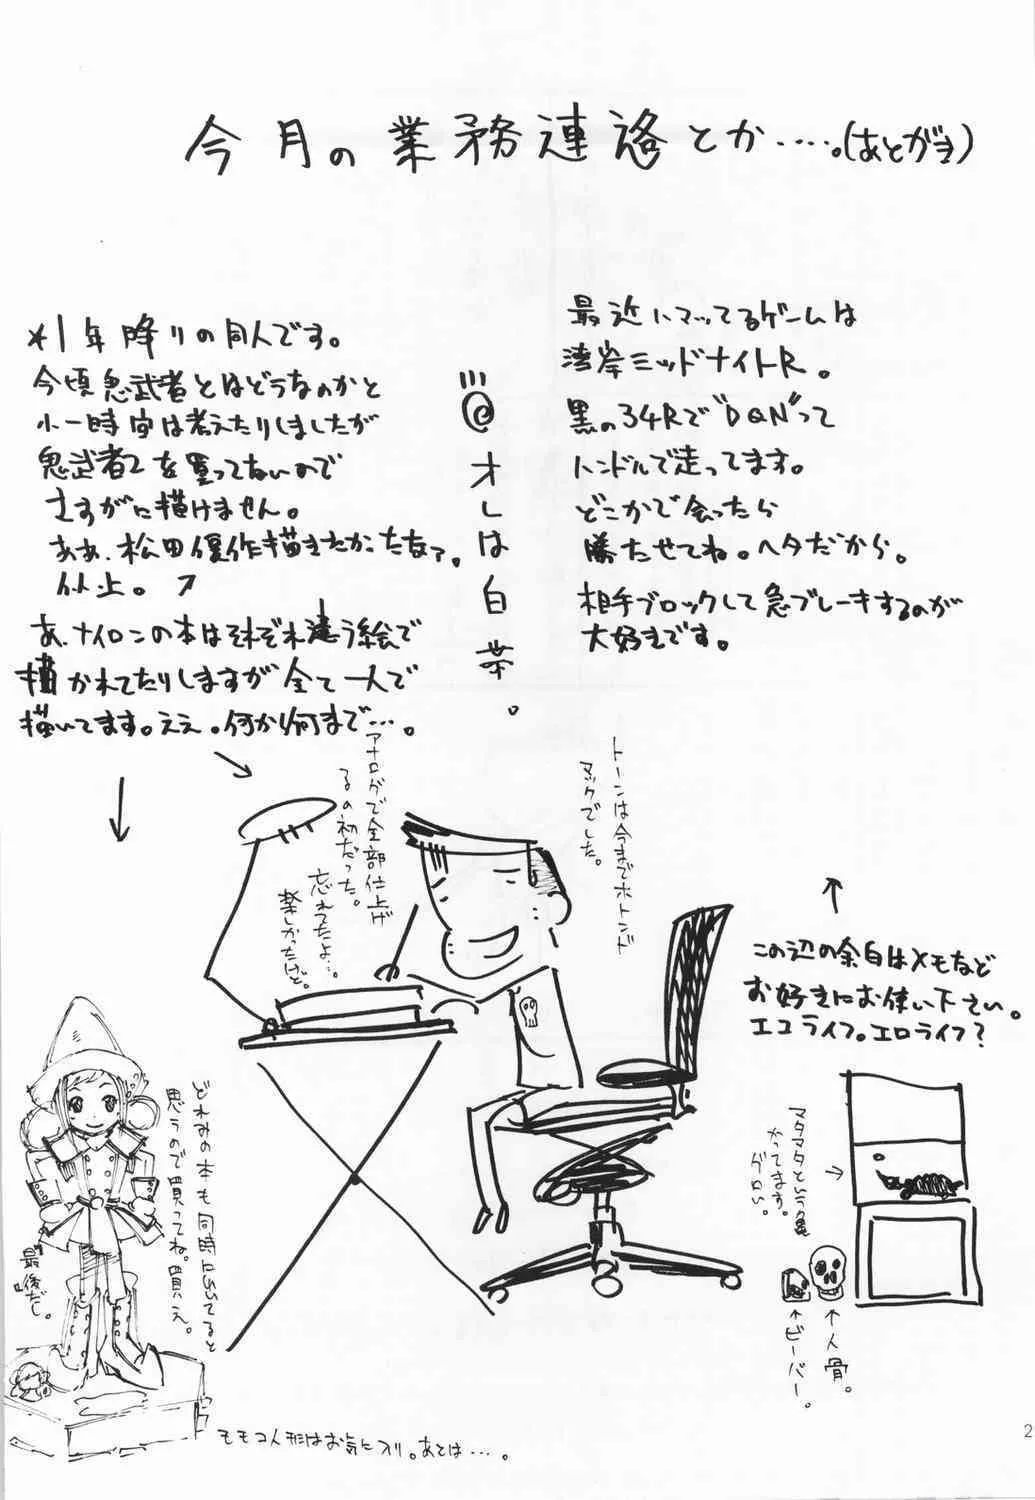 今月の業務連絡とか‥‥。(あとがき)
*1年降りの同人です。
今頃鬼武者とはどうなのかと
小一時間は考えたりしましたが
鬼武者2を買ってないので
さすがに描けません。
ああ、松田優作描きたかったなァ。
以上。↗
あ、ナイロンの本はそれぞれ違う絵で
描かれてたりしますが全て一人で
描いてます。ええ。何から何まで…。
オレは白
最近ハマッてるゲームは
湾岸ミッドナイトR。
黒の34Rで"DQN"って
ハンドルで走ってます。
どこかで会ったら
勝たせてね。ヘタだから。
相手ブロックして急ブレーキするのが
大好きです。
トーンは今までホトンド
マックでした。
アナログで全部仕上げ
るの初だった。
忘れてたよ…。
楽しかったけど。
↑
この辺の余白はメモなど
お好きにお使い下さい。
エコライフ。エロライフ?
マタマタという亀
かってます。
グロい。
→
↑人骨。
↑ビーバー。
どれみの本も同時にいてると
思うので買ってね。買え。
最後だし。
モモコ人形はお気に入り。あとは…。
2